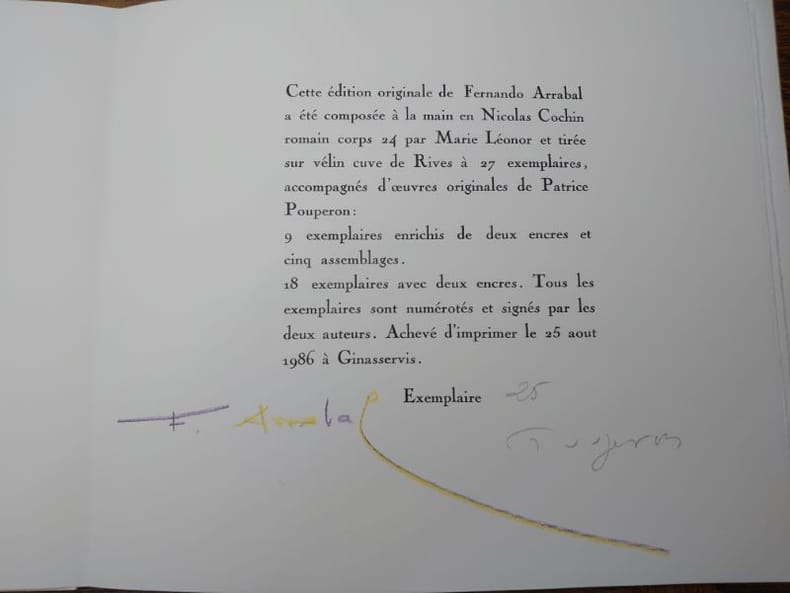 Cette édition originale de Fernando Arrabal
a été composée à la main en Nicolas Cochin
romain corps 24 par Marie Léonor et tirée
sur vélin cuve de Rives à 27 exemplaires,
accompagnés d'œuvres originales de Patrice
Pouperon:
9 exemplaires enrichis de deux encres et
cinq assemblages.
18 exemplaires avec deux encres. Tous les
exemplaires sont numérotés et signés par les
deux auteurs. Achevé d'imprimer le 25 aout
1986 à Ginasservis.
Exemplaire 25
F. Arrabal
Pouperon